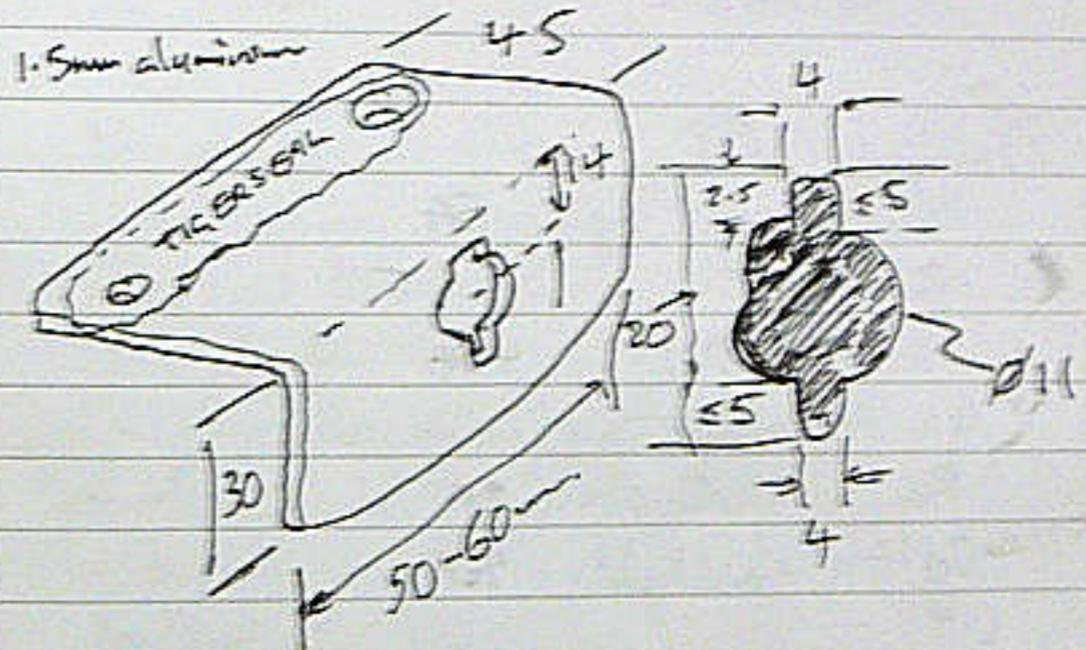 1.5mm aluminium
45
TIGERSEAL
4
20
30
50-60mm
4
2.5
≤5
≤5
Ø11
4